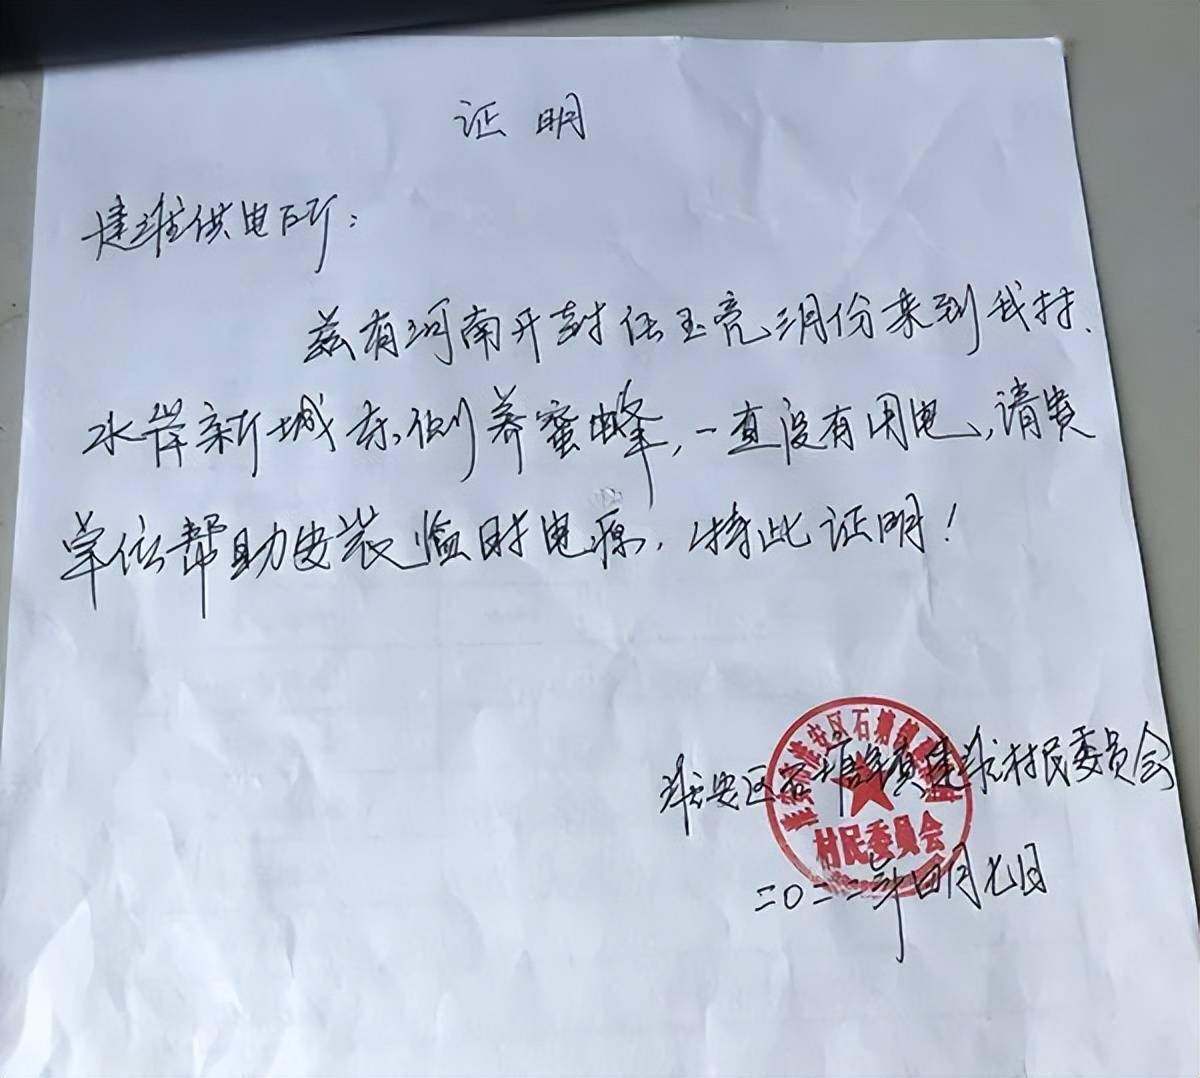 证明
建淮供电所：
兹有河南开封任玉亮三月份来到我村、
水岸新城东侧养蜜蜂，一直没有用电，请贵
单位帮助安装临时电源，特此证明！
淮安区石塘镇建淮村民委员会
二〇二二年四月七日
淮安市淮安区石塘镇
村民委员会